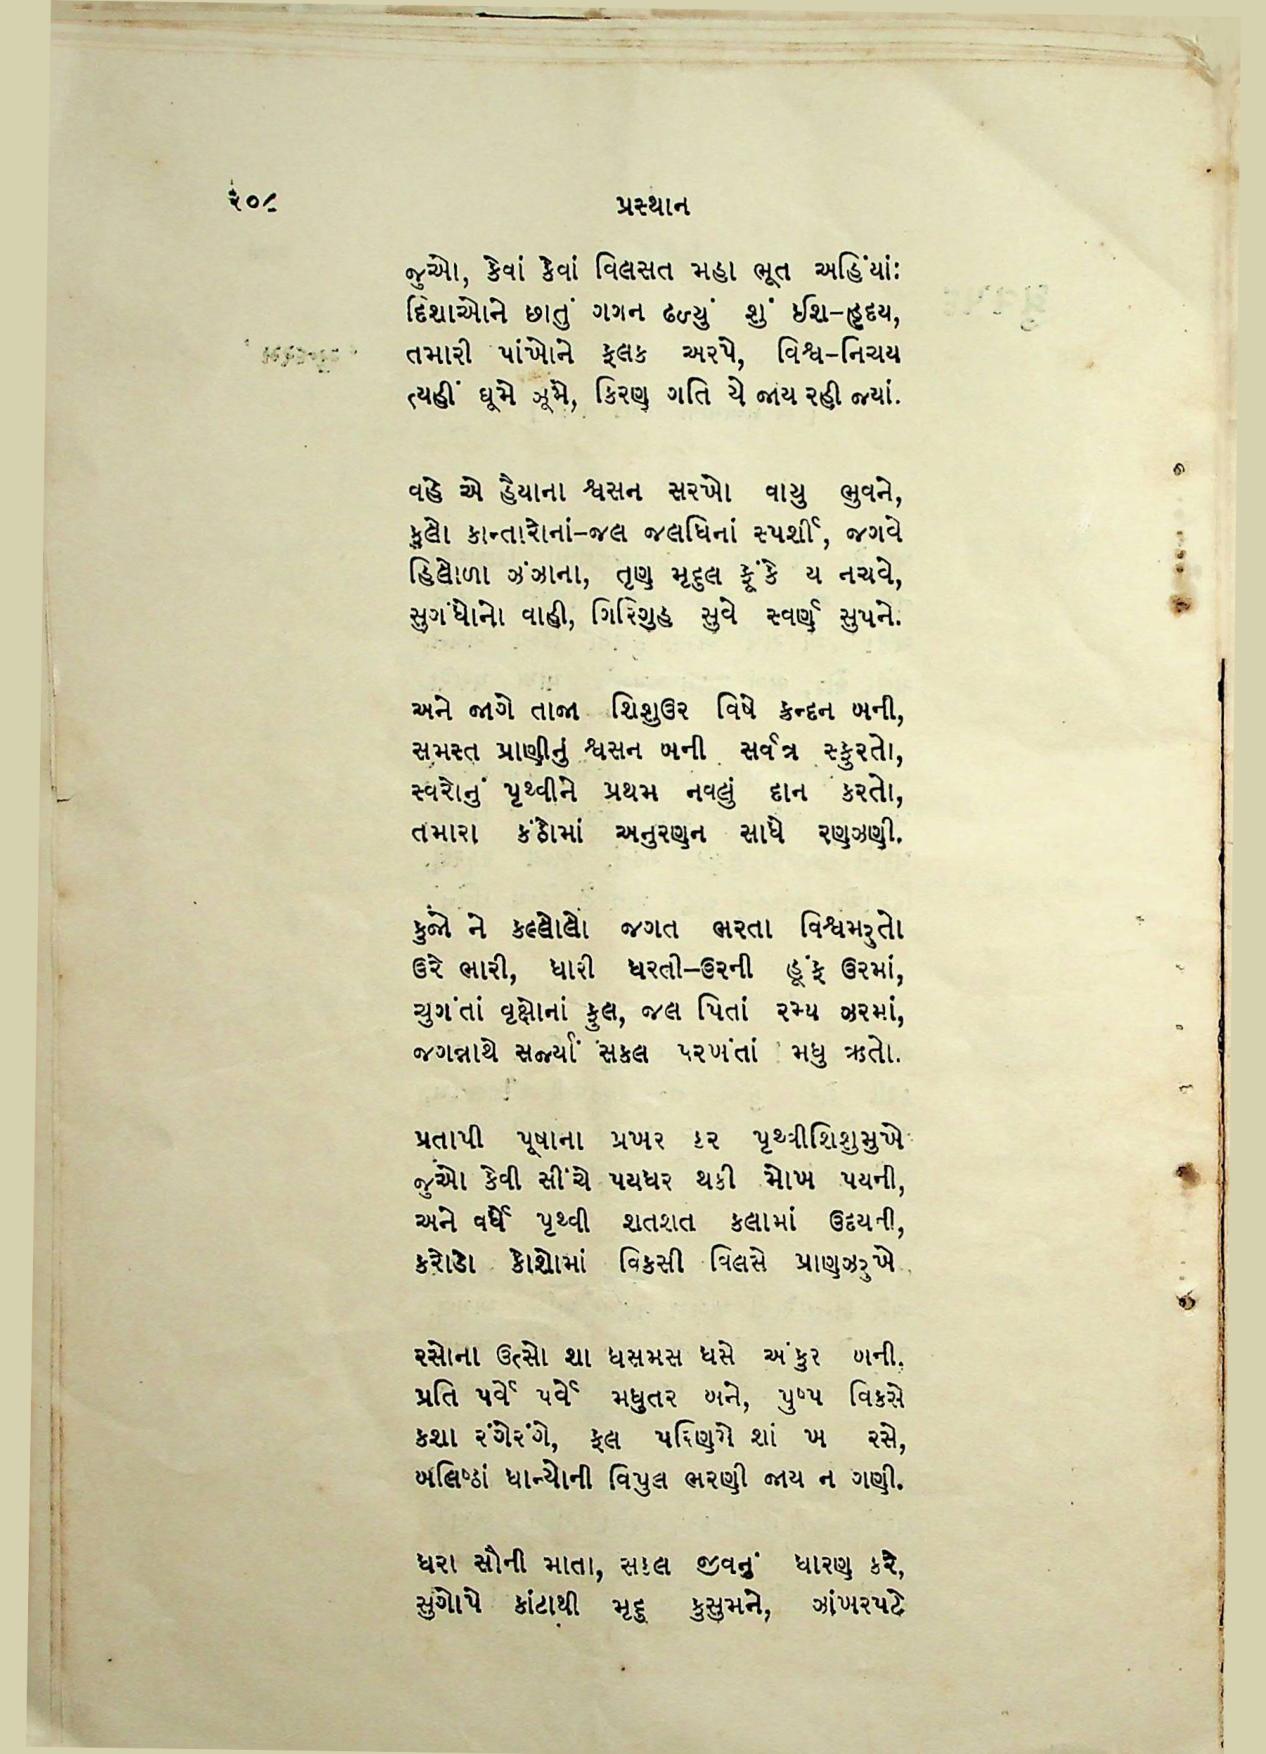 ૨૦૮
પ્રસ્થાન
જુઓ, કેવાં કેવાં વિલસત મહા ભૂત અહિંયાં:
દિશાઓને છાતું ગગન ઢળ્યું શું ઈશ-હૃદય,
તમારી પાંખોને ફલક અરપે, વિશ્વ-નિચય
ત્યહીં ઘૂમે ઝૂમે, કિરણ ગતિ યે જાય રહી જ્યાં.
વહે એ હૈયાના શ્વસન સરખો વાયુ ભુવને,
કુલો કાન્તારોનાં-જલ જલધિનાં સ્પર્શી, જગવે
હિલોળા ઝંઝાના, તૃણ મૃદુલ ફૂંકે ય નચવે,
સુગંધોનો વાહી, ગિરિગુહ સુવે સ્વર્ણ સુપને.
અને જાગે તાજા શિશુઉર વિષે ક્રન્દન બની,
સમસ્ત પ્રાણીનું શ્વસન બની સર્વત્ર સ્ફુરતો,
સ્વરોનું પૃથ્વીને પ્રથમ નવલું દાન કરતો,
તમારા કંઠોમાં અનુરણન સાધે રણઝણી.
કુજો ને કલ્લોલો જગત ભરતા વિશ્વમરુતો
ઉરે ભારી, ધારી ધરતી-ઉરની હૂંફ ઉરમાં,
ચુગંતાં વૃક્ષોનાં ફુલ, જલ પિતાં રમ્ય ઝરમાં,
જગન્નાથે સર્જ્યાં સકલ પરખંતાં મધુ ઋતો.
પ્રતાપી પૂષાના પ્રખર કર પૃથ્વીશિશુમુખે
જુઓ કેવી સીંચે પયધર થકી મોખ પયની,
અને વર્ધે પૃથ્વી શતશત કલામાં ઉદયની,
કરોડો કોશોમાં વિકસી વિલસે પ્રાણઝરુખે
રસોના ઉત્સો શા ધસમસ ધસે અંકુર બની.
પ્રતિ પર્વે પર્વે મધુતર બને, પુષ્પ વિકસે
કશા રંગેરંગે, ફલ પરિણમે શાં ખ રસે,
બલિષ્ઠાં ધાન્યોની વિપુલ ભરણી જાય ન ગણી.
ધરા સૌની માતા, સકલ જીવનું ધારણ કરે,
સુગોપે કાંટાથી મૃદુ કુસુમને, ઝાંખરપટે